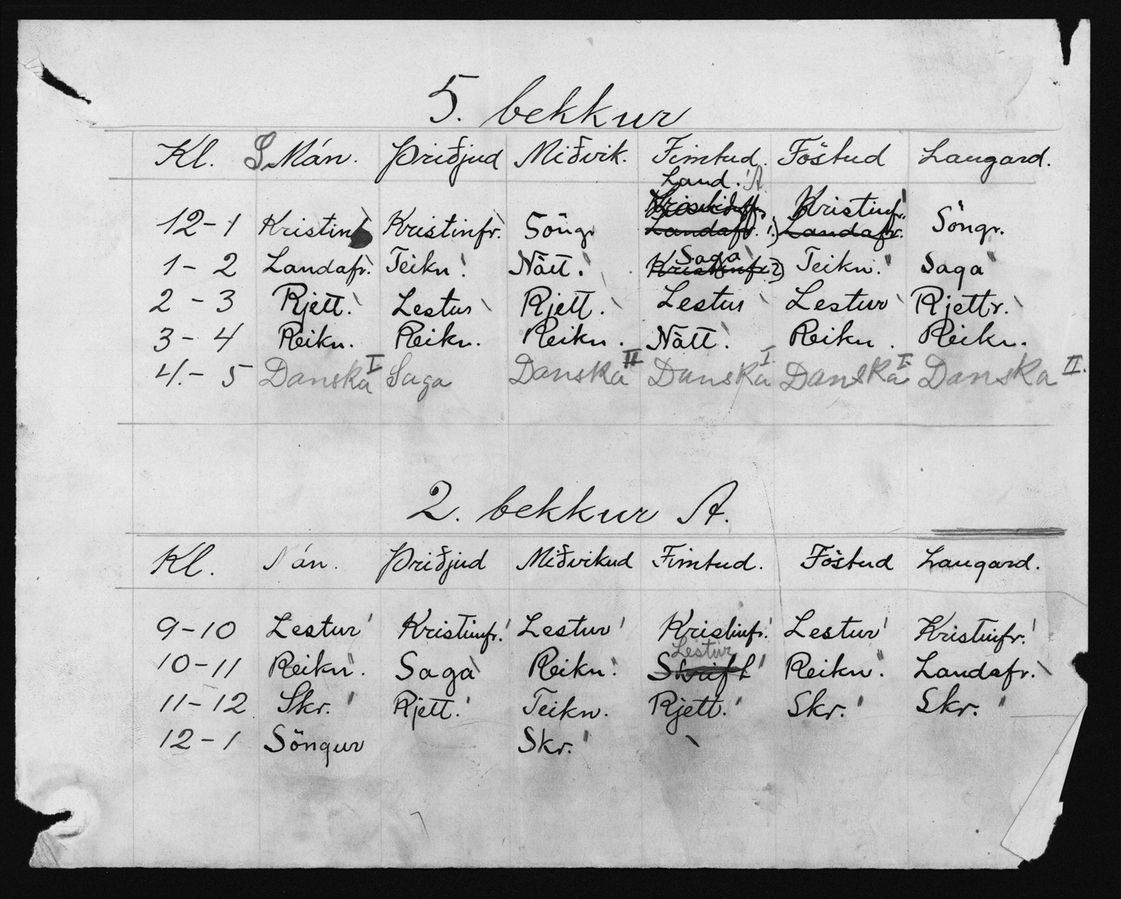 5. bekkur
Kl. Mán. Þriðjud Miðvik. Fimtud. Föstud Laugard.
Land.
12-1 Kristinf Kristinfr. Söngr Landafr. 1) Kristinfr. Landafr. Söngr.
1-2 Landafr. Teikn. Nátt. Saga Kristinfr. 2) Teikn. Saga
2-3 Rjett. Lestur Rjett. Lestur Lestur Rjettr.
3-4 Reikn. Reikn. Reikn. Nátt. Reikn. Reikn.
4-5 Danska I Saga Danska II Danska I Danska I Danska II.
2. bekkur A.
Kl. án. Þriðjud Miðvikud Fimtud. Föstud Laugard.
9-10 Lestur Kristinfr. Lestur Kristinfr. Lestur Kristinfr.
10-11 Reikn. Saga Reikn. Lestur Skrift Reikn. Landafr.
11-12 Skr. Rjett. Teikn. Rjett. Skr. Skr.
12-1 Söngur Skr.